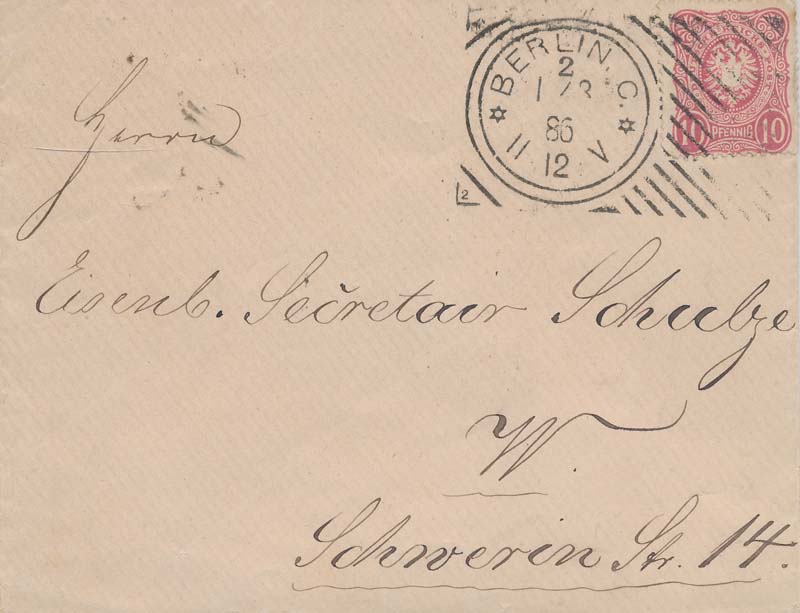 BERLIN, C.
2
86
11 12 V
2
10 PFENNIG 10
Herrn
Eisenb. Secretair Schulze
W.
Schwerin Str. 14.